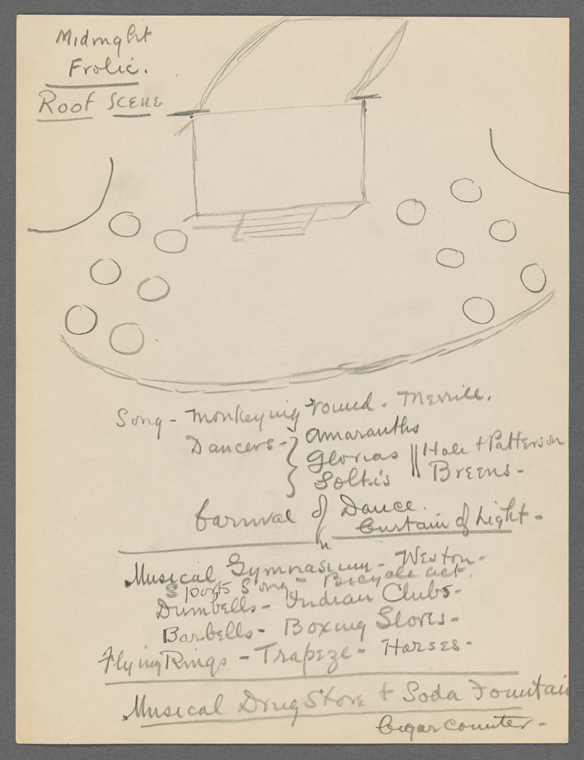 Midnight
Frolic.
Roof Scene
Song - Monkeying round - Merrill.
Dancers - Amaranths
Glorias Hale + Patterson
Solti's Breens -
Carnival of Dance.
Curtain of Light -
Musical Gymnasium - Weston -
Sports Song - Bicycle act.
Dumbells - Indian Clubs -
Barbells - Boxing Gloves -
Flying Rings - Trapeze - Horses -
Musical Drug Store + Soda Fountain
Cigar Counter -